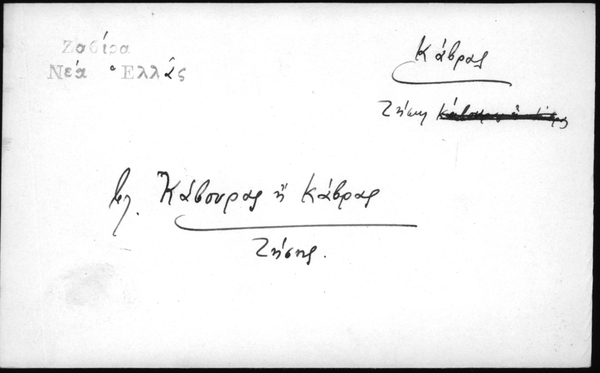 Ζαβίρα
Νέα Ἑλλάς
Κάβρας
Ζήσης
βλ. Κάβουρας ἢ Κάβρας
Ζήσης.